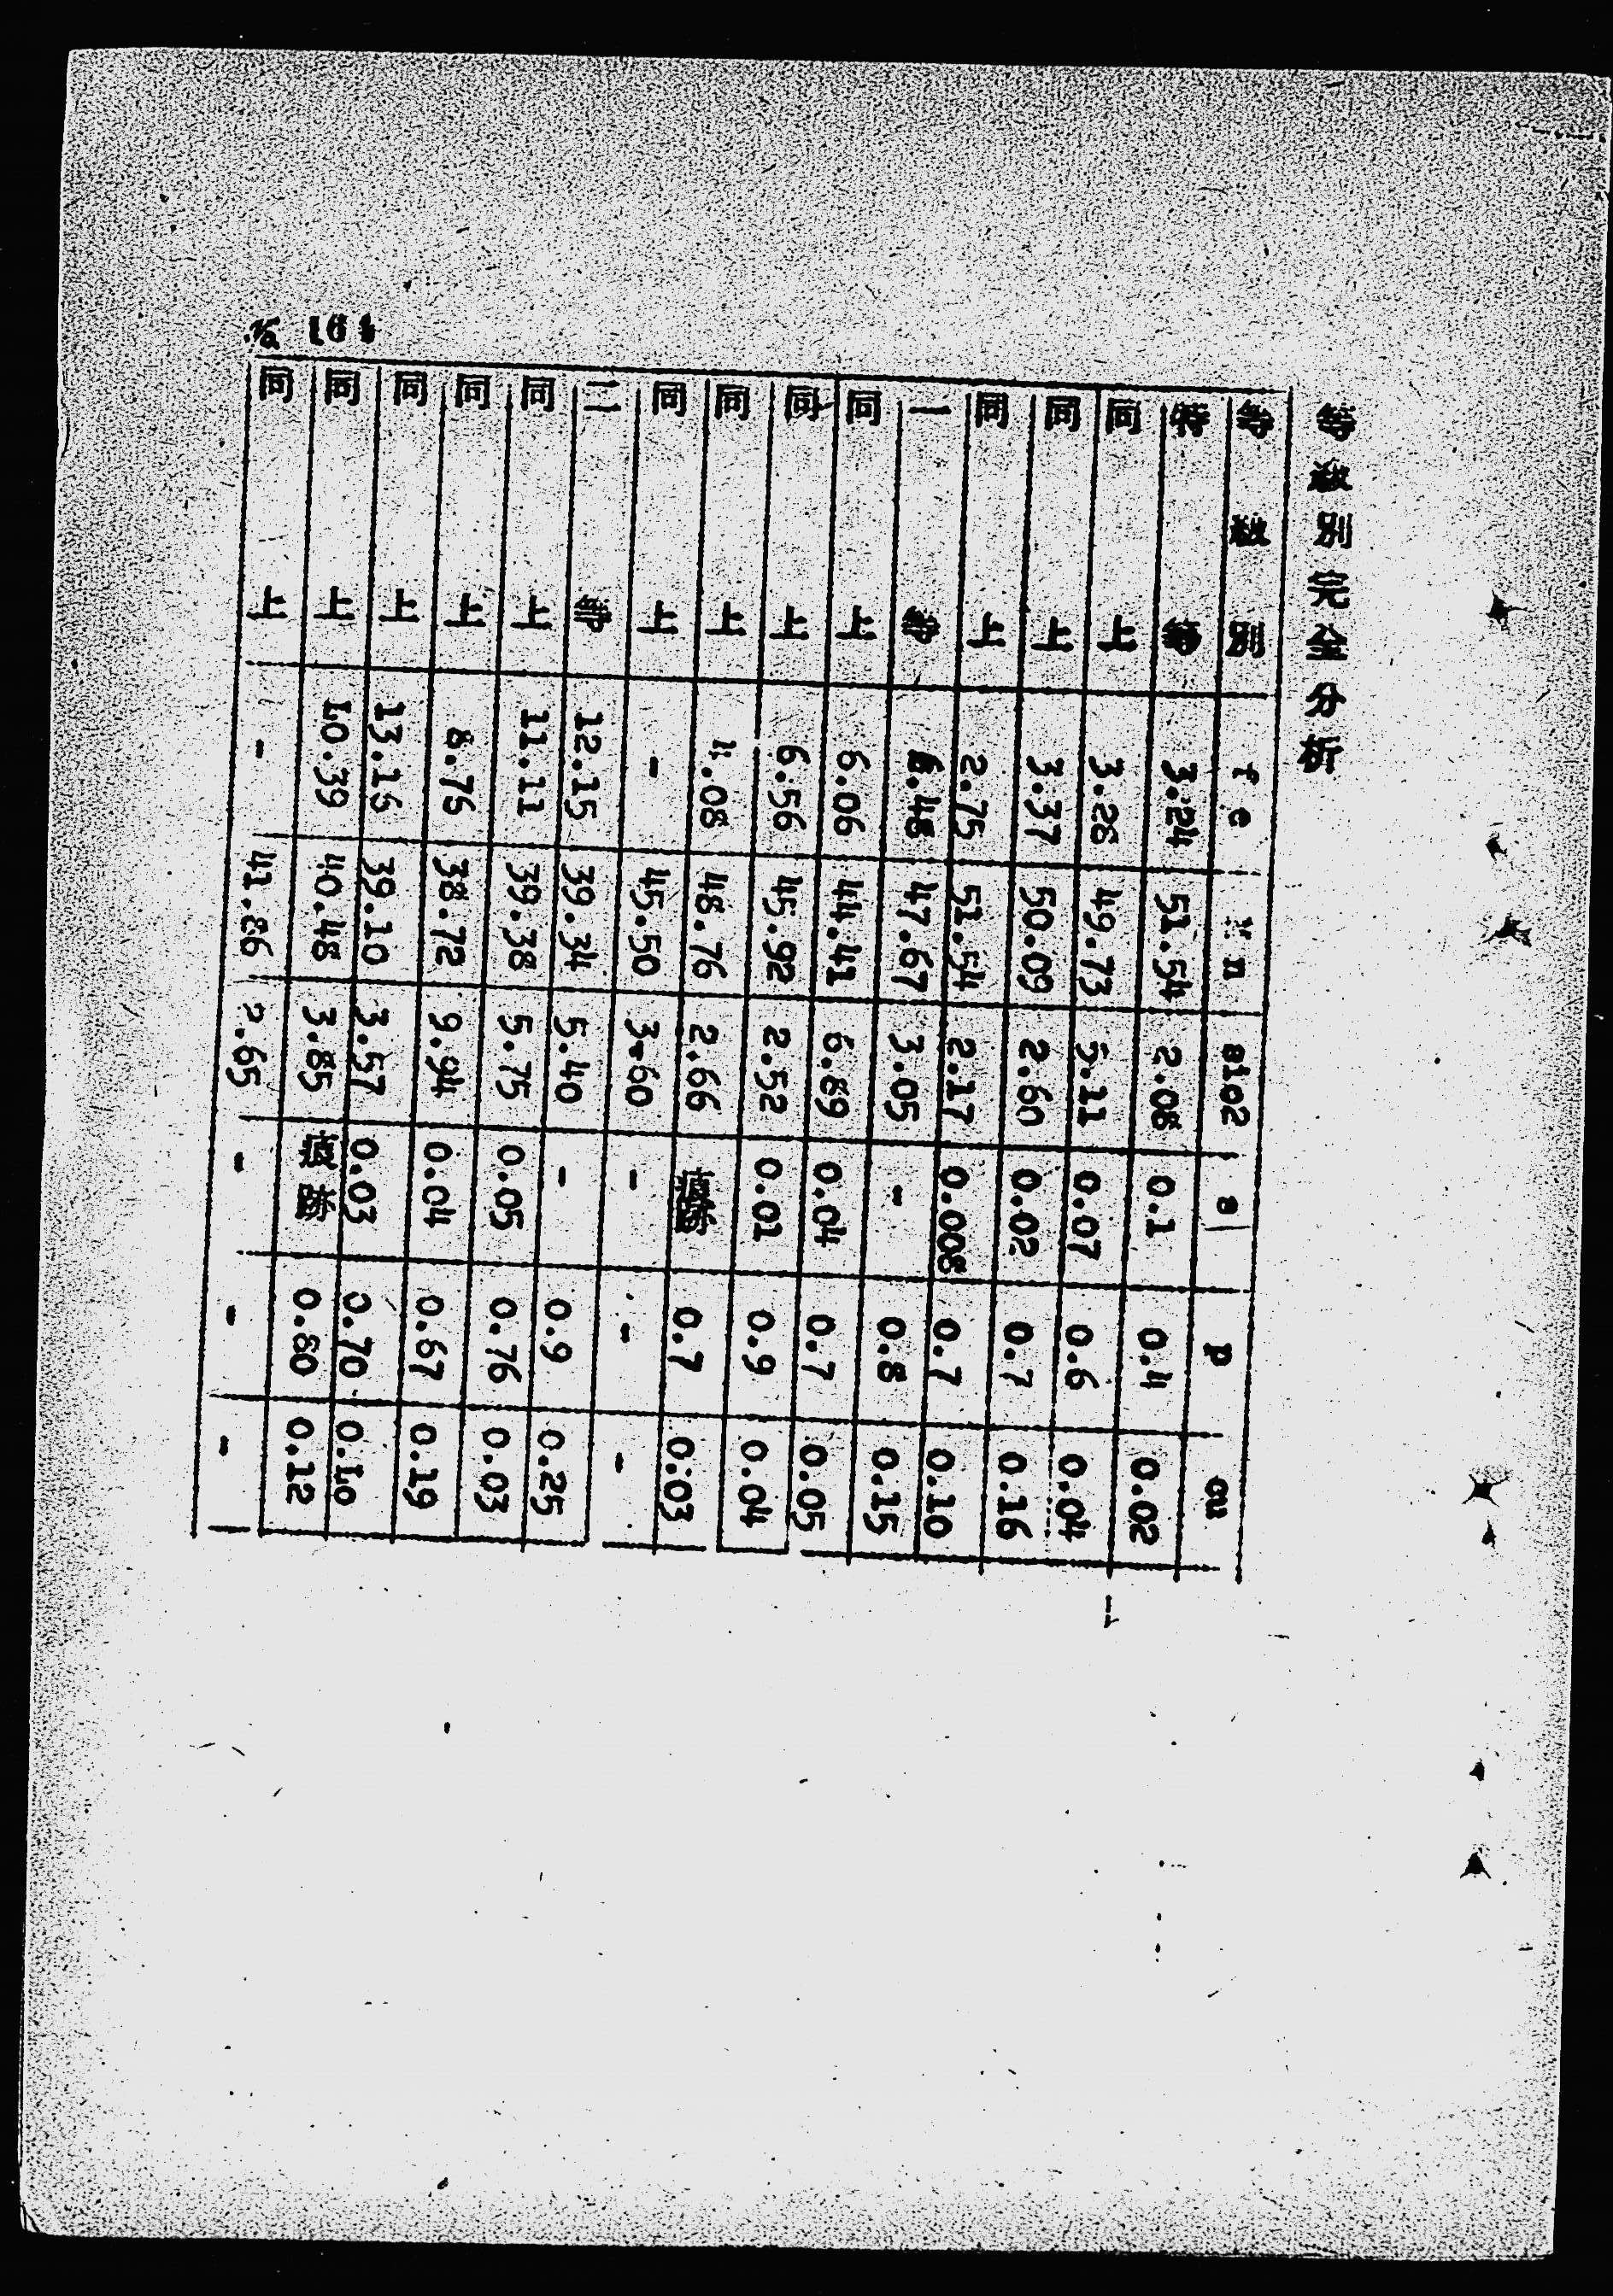 等級別完全分析
等級別 fe mn sio2 s p cu
特等 3.24 51.54 2.08 0.1 0.4 0.02
同上 3.28 49.73 5.11 0.07 0.6 0.04
同上 3.37 50.09 2.60 0.02 0.7 0.16
同上 2.75 51.54 2.17 0.008 0.7 0.10
一等 6.48 47.67 3.05 - 0.8 0.15
同上 6.06 44.41 6.89 0.04 0.7 0.05
同上 6.56 45.92 2.52 0.01 0.9 0.04
同上 4.08 48.76 2.66 0.7 0.03
同上 - 45.50 3.60 - - -
二等 12.15 39.34 5.40 - 0.9 0.25
同上 11.11 39.38 5.75 0.05 0.76 0.03
同上 8.76 38.72 9.94 0.04 0.67 0.19
同上 13.16 39.10 3.57 0.03 0.70 0.10
同上 10.39 40.48 3.85 0.80 0.12
同上 - 41.86 2.65 - - -